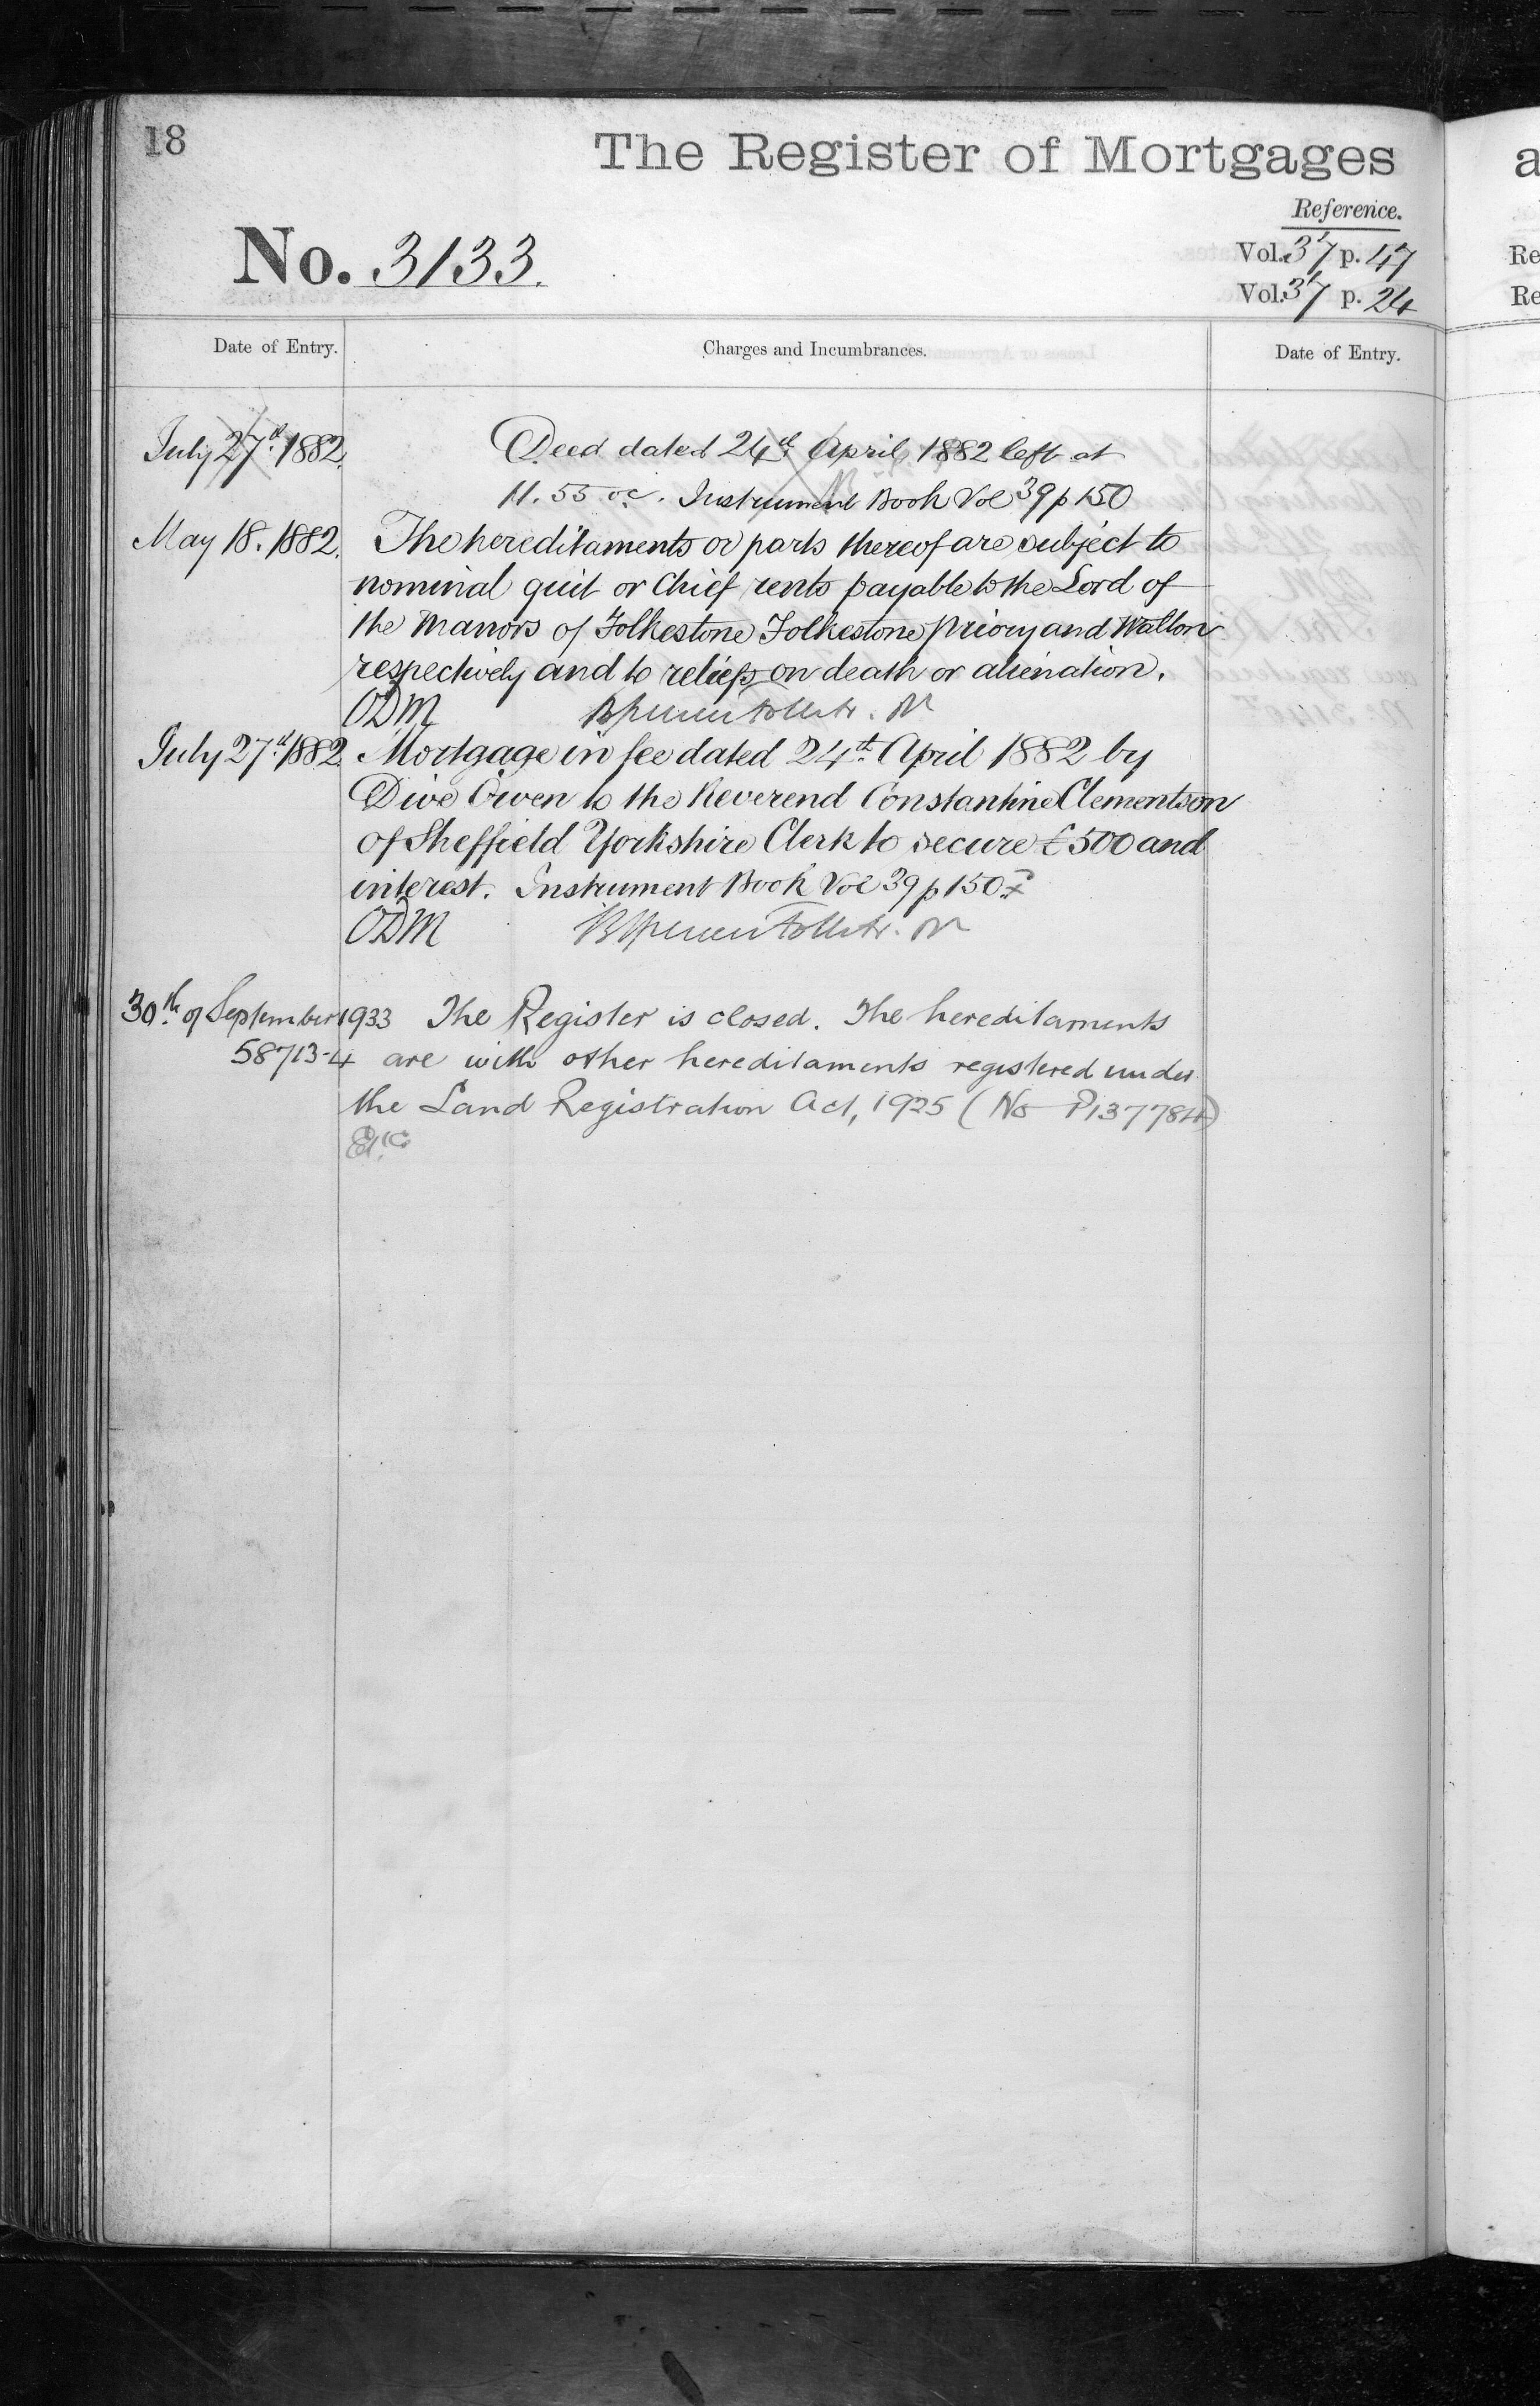 18
The Register of Mortgages
a
Reference.
No. 3133.
Vol. 37 p. 47
Re
Vol. 37 p. 24
Re
Date of Entry.
Charges and Incumbrances.
Date of Entry.
July 27th 1882. Deed dated 24th April 1882 left at
11.55 oc. Instrument Book Vol 39 p 150
May 18. 1882. The hereditaments or parts thereof are subject to
nominal quit or Chief rents payable to the Lord of
the Manors of Folkestone Folkestone Priory and Walton
respectively and to reliefs on death or alienation.
ODM
July 27th 1882 Mortgage in fee dated 24th April 1882 by
Dive Owen to the Reverend Constantine Clementson
of Sheffield Yorkshire Clerk to secure £500 and
interest. Instrument Book Vol 39 p 150
ODM
30th of September 1933 The Register is closed. The hereditaments
58713-4 are with other hereditaments registered under
the Land Registration Act, 1925 (No P137784)